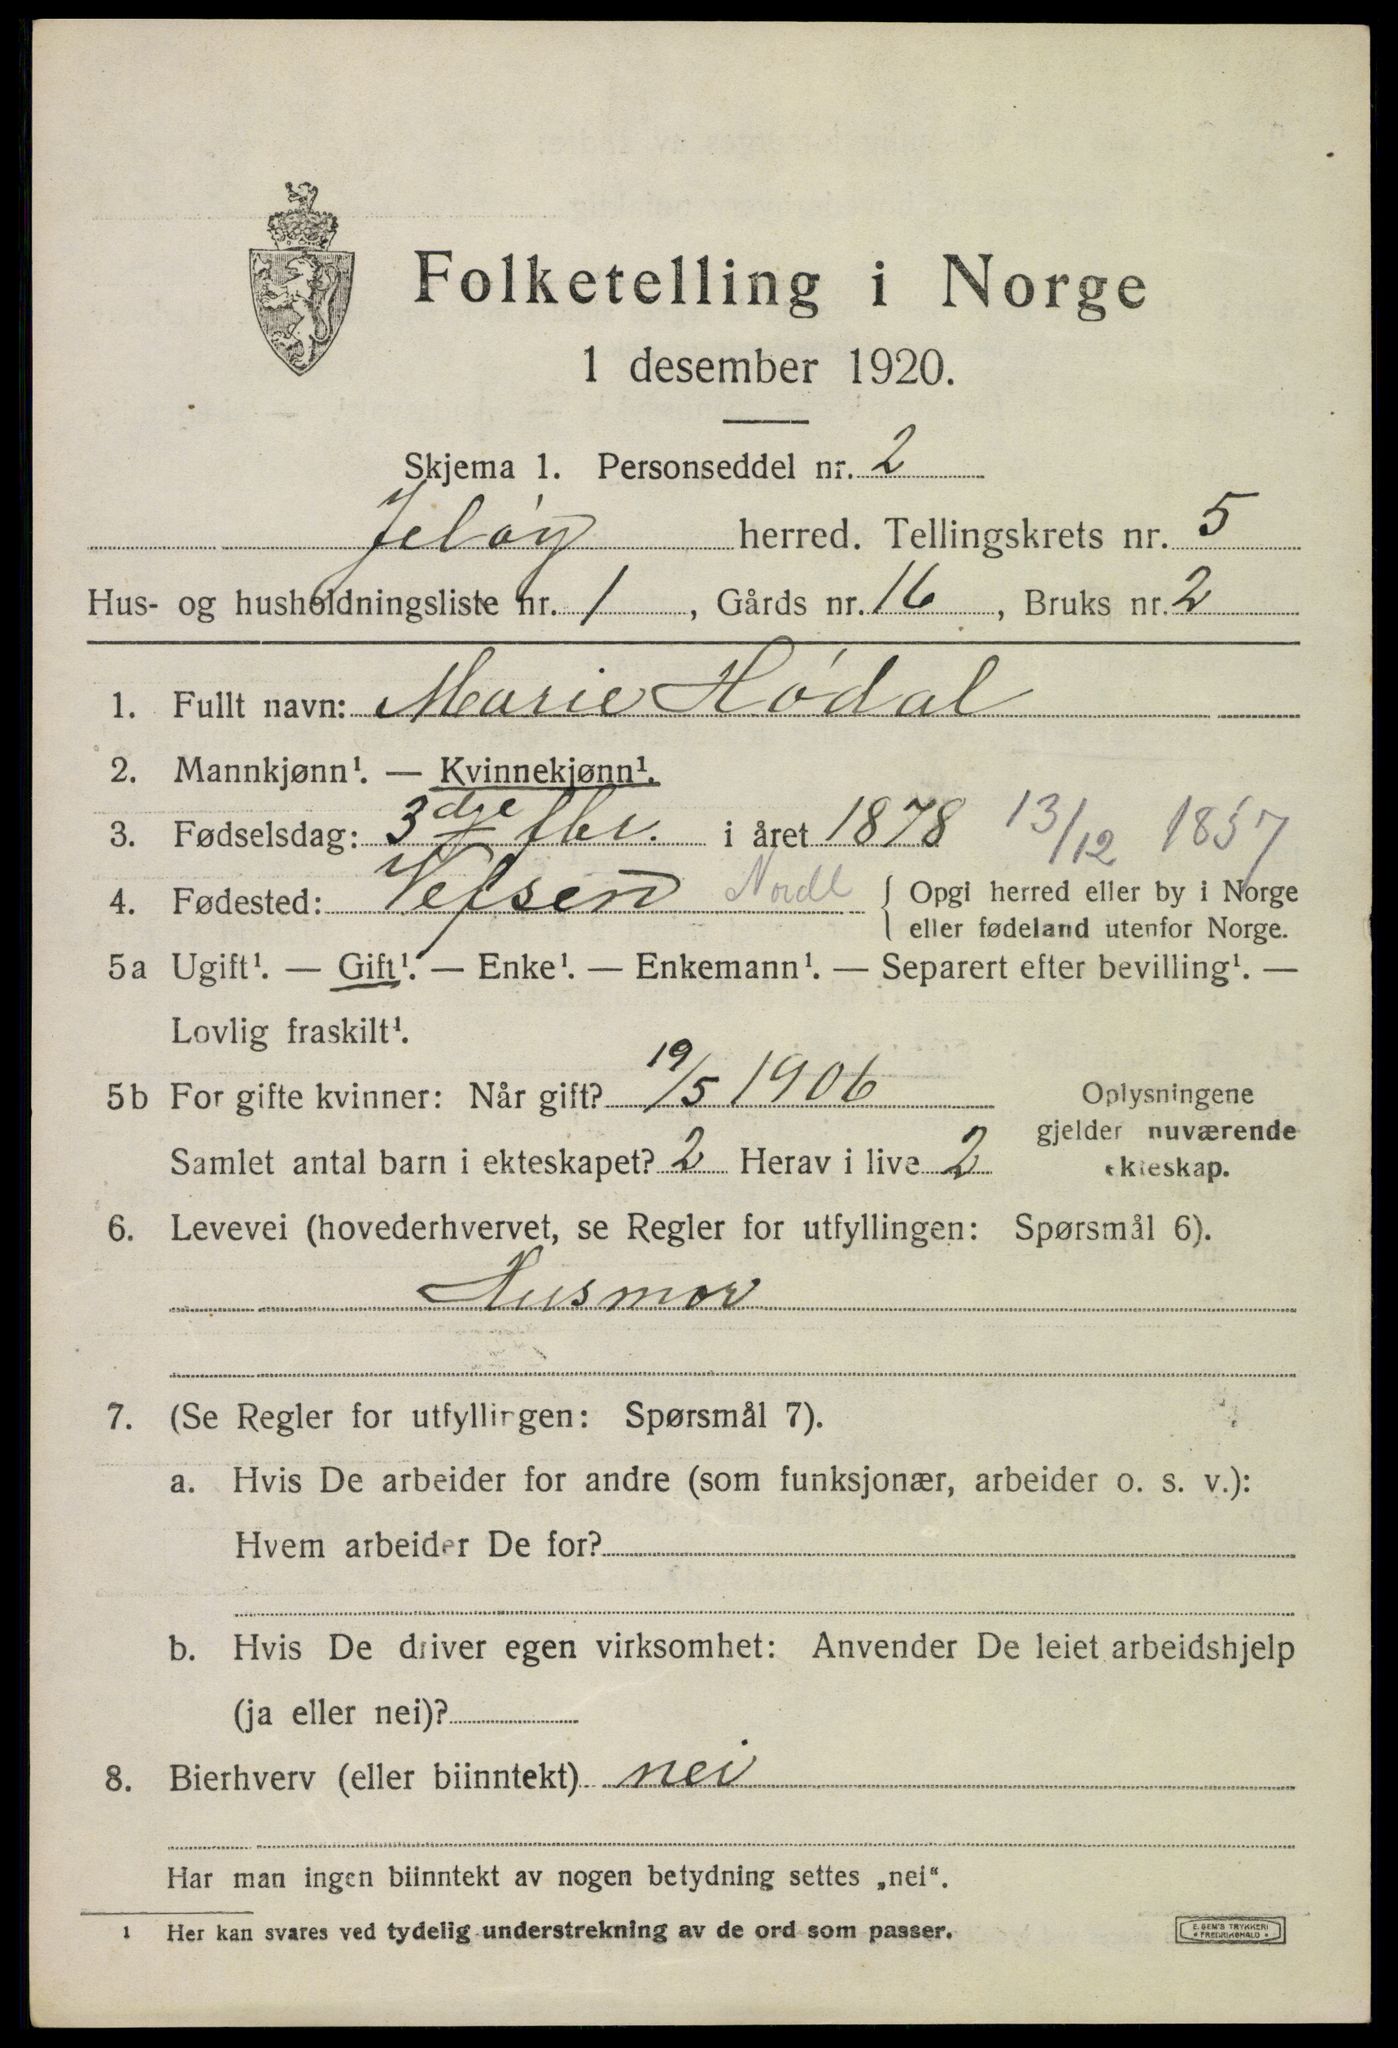 Folketelling i Norge
1 desember 1920.
Skjema 1. Personseddel nr. 2
Jeløy herred. Tellingskrets nr. 5
Hus- og husholdningsliste nr. 1, Gårds nr. 16, Bruks nr. 2
1. Fullt navn: Marie Hødal
2. Mannkjønn¹. — Kvinnekjønn¹.
3. Fødselsdag: 3dje fbr. i året 1878 13/12 1857
4. Fødested: Vefsen Nordl { Opgi herred eller by i Norge
eller fødeland utenfor Norge.
5a Ugift¹. — Gift¹. — Enke¹. — Enkemann¹. — Separert efter bevilling¹. —
Lovlig fraskilt¹.
5b For gifte kvinner: Når gift? 19/5 1906 Oplysningene
gjelder nuværende
Samlet antal barn i ekteskapet? 2 Herav i live 2 ekteskap.
6. Levevei (hovederhvervet, se Regler for utfyllingen: Spørsmål 6).
Husmor
7. (Se Regler for utfyllingen: Spørsmål 7).
a. Hvis De arbeider for andre (som funksjonær, arbeider o. s. v.):
Hvem arbeider De for?
b. Hvis De driver egen virksomhet: Anvender De leiet arbeidshjelp
(ja eller nei)?
8. Bierhverv (eller biinntekt) nei
Har man ingen biinntekt av nogen betydning settes „nei“.
¹ Her kan svares ved tydelig understrekning av de ord som passer.
E. SEM'S TRYKKERI
FREDRIKSHALD